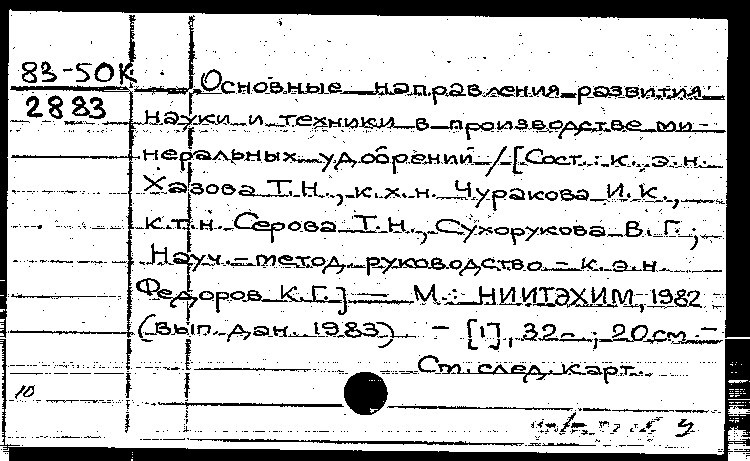 83-50К
2883
Основные направления развития
науки и техники в производстве ми-
неральных удобрений / [Сост.: к.э.н.
Хазова Т.Н., к.х.н. Чуракова И.К.,
к.т.н. Серова Т.Н., Сухорукова В.Г.;
Науч.-метод. руководство - к.э.н.
Федоров К.Г.] — М.: НИИТЭХИМ, 1982
(вып. дан. 1983) - [1], 32 с.; 20 см. -
См. след. карт.
10